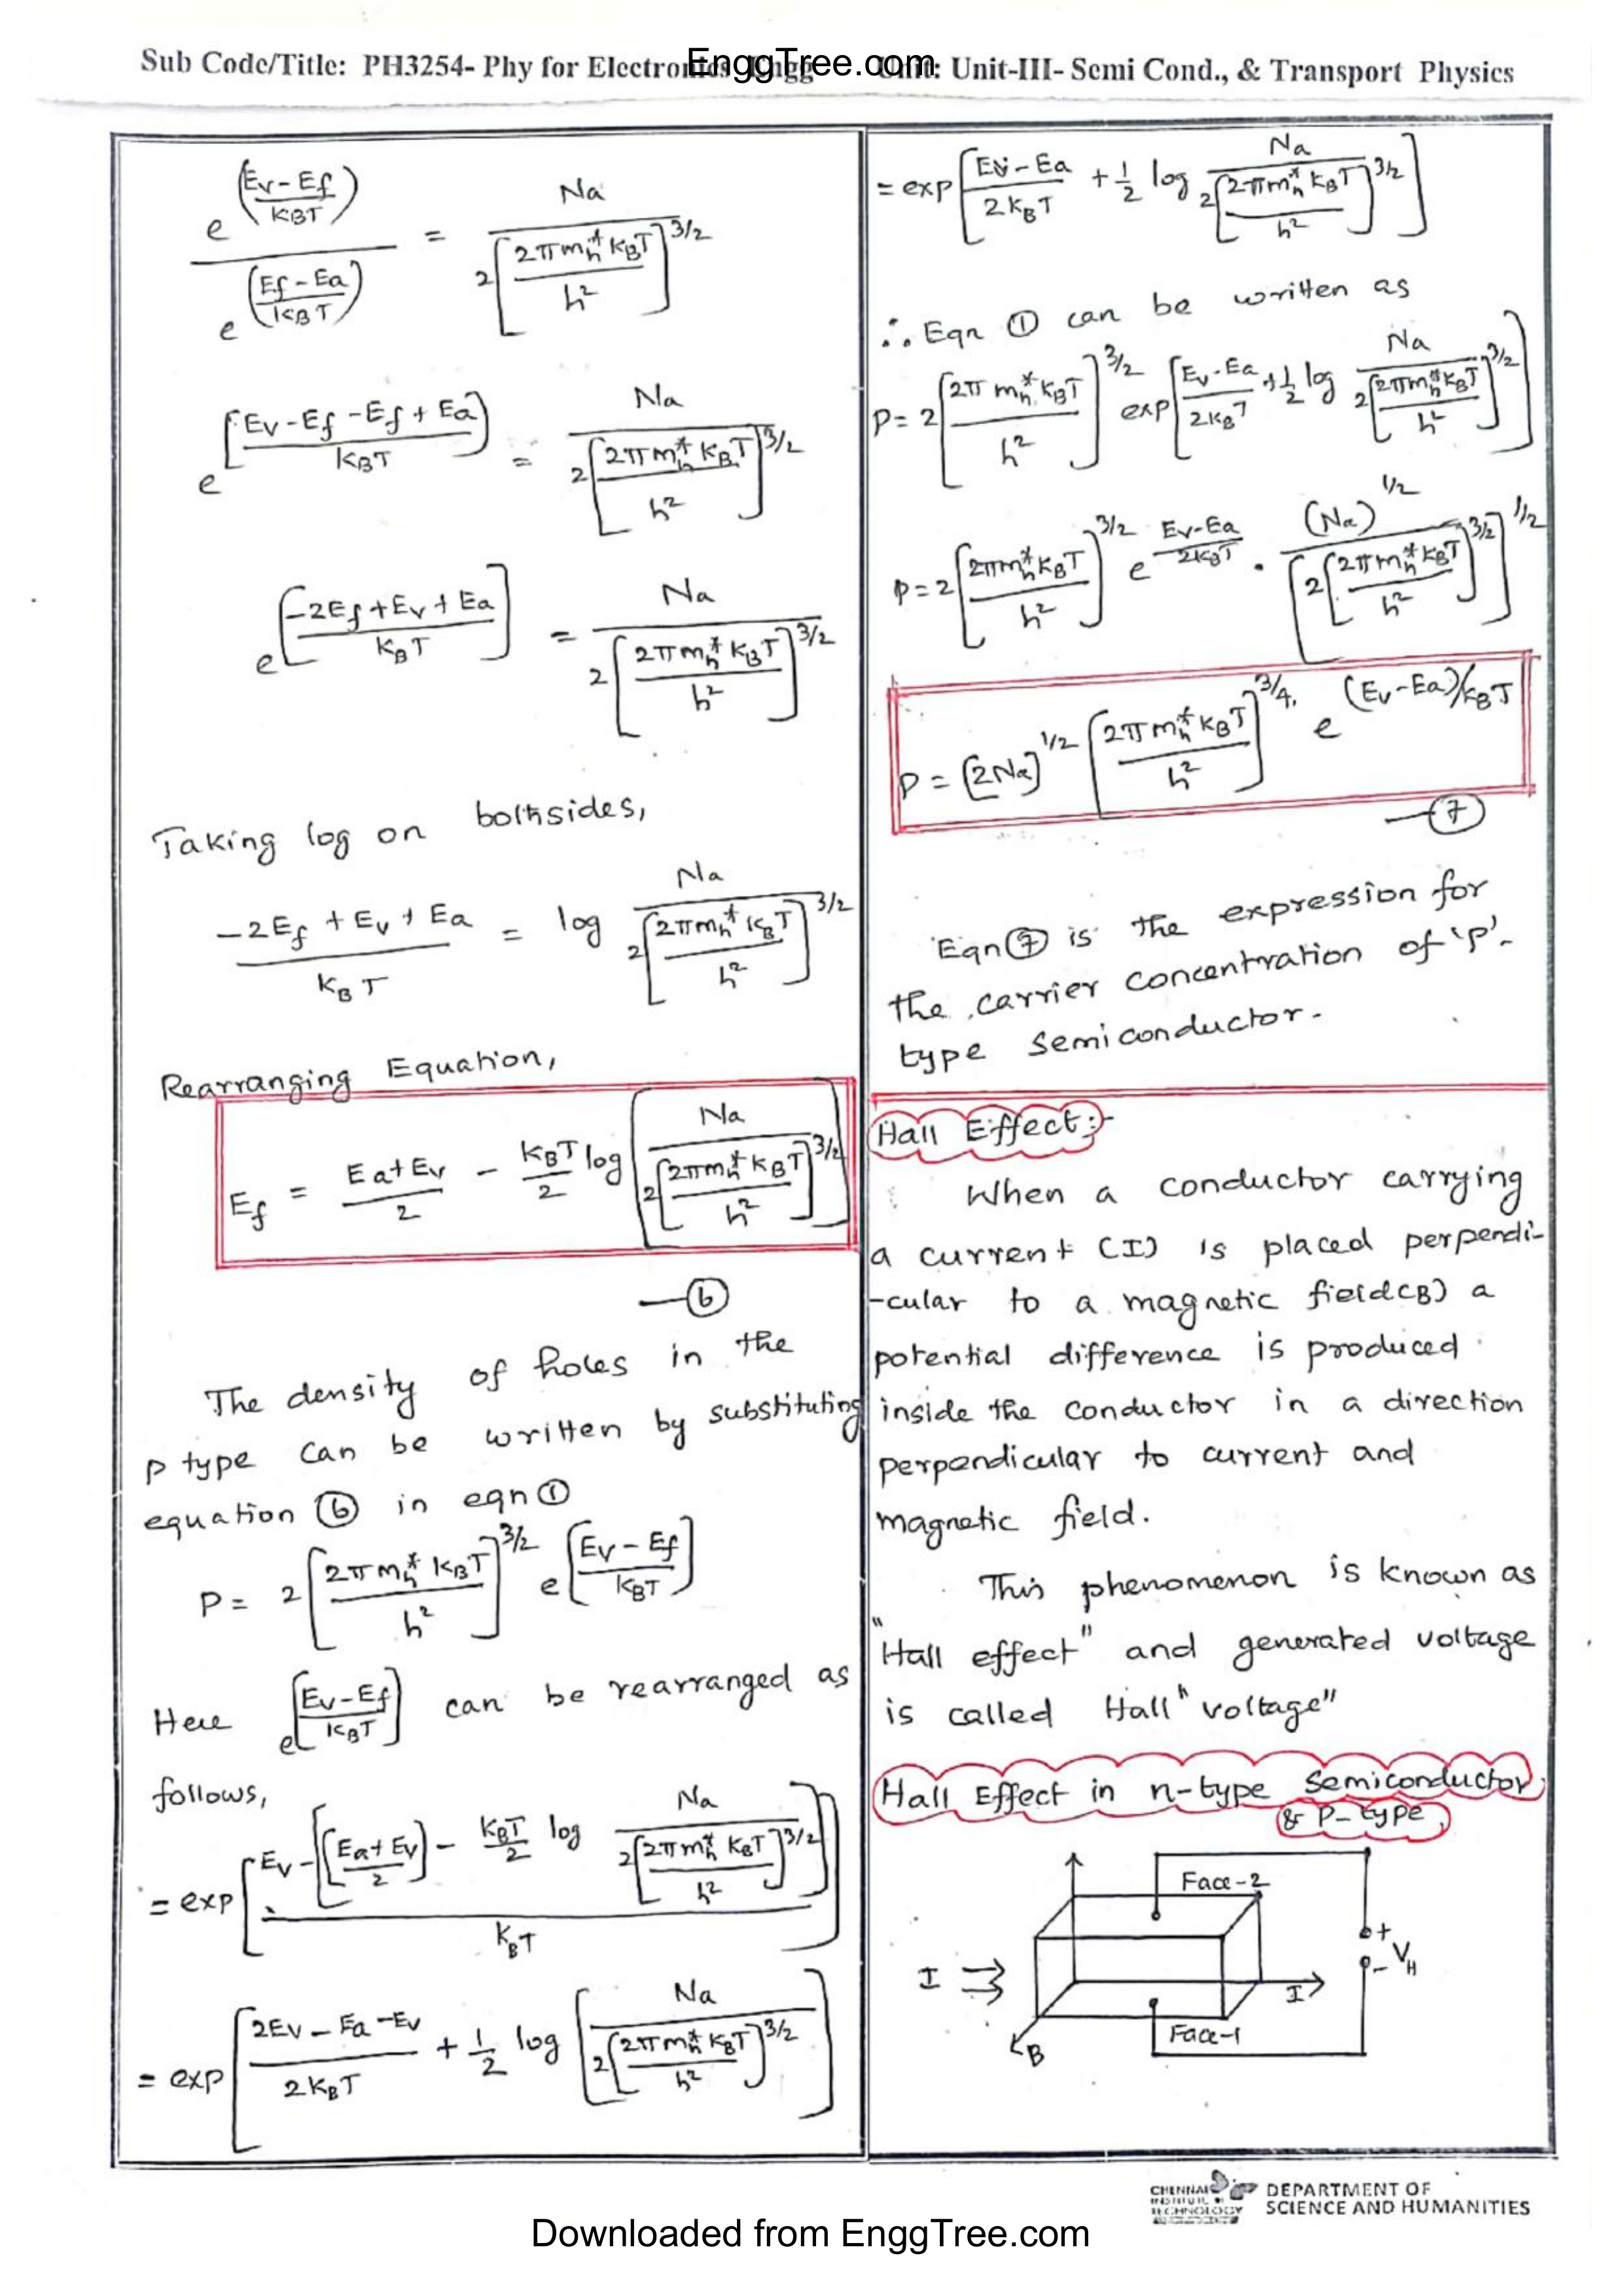 Sub Code/Title: PH3254- Phy for Electronics Engg Unit: Unit-III- Semi Cond., & Transport Physics
EnggTree.com
e^((Ev-Ef)/(KBT)) / e^((Ef-Ea)/(KBT)) = Na / 2[2πmh* KBT / h²]^3/2
e^[(Ev-Ef-Ef+Ea)/(KBT)] = Na / 2[2πmh* KBT / h²]^3/2
e^[(-2Ef+Ev+Ea)/(KBT)] = Na / 2[2πmh* KBT / h²]^3/2
Taking log on bothsides,
(-2Ef+Ev+Ea)/(KBT) = log Na / 2[2πmh* KBT / h²]^3/2
Rearranging Equation,
Ef = (Ea+Ev)/2 - (KBT/2) log [Na / 2[2πmh* KBT / h²]^3/2]
—(6)
The density of holes in the
P type can be written by substituting
equation (6) in eqn (1)
P = 2[2πmh* KBT / h²]^3/2 e^[(Ev-Ef)/(KBT)]
Here e^[(Ev-Ef)/(KBT)] can be rearranged as
follows,
= exp[(Ev-[[(Ea+Ev)/2] - (KBT/2) log Na / 2[2πmh* KBT / h²]^3/2]) / KBT]
= exp[(2Ev-Ea-Ev)/(2KBT) + 1/2 log [Na / 2[2πmh* KBT / h²]^3/2]]
= exp[(Ev-Ea)/(2KBT) + 1/2 log Na / 2[2πmh* KBT / h²]^3/2]
∴ Eqn (1) can be written as
P = 2[2πmh* KBT / h²]^3/2 exp[(Ev-Ea)/(2KBT) + 1/2 log Na / 2[2πmh* KBT / h²]^3/2]
P = 2[2πmh* KBT / h²]^3/2 e^((Ev-Ea)/(2KBT)) . (Na)^1/2 / [2[2πmh* KBT / h²]^3/2]^1/2
P = [2Na]^1/2 [2πmh* KBT / h²]^3/4. e^((Ev-Ea)/KBT)
—(7)
Eqn (7) is the expression for
the carrier concentration of 'P'-
type semiconductor.
Hall Effect:-
When a conductor carrying
a current (I) is placed perpendi-
-cular to a magnetic field(B) a
potential difference is produced
inside the conductor in a direction
perpendicular to current and
magnetic field.
This phenomenon is known as
"Hall effect" and generated voltage
is called Hall "voltage"
Hall Effect in n-type Semiconductor,
& P-type,
Face-2
+
VH
-
I
I
Face-1
B
CHENNAI
INSTITUTE OF
TECHNOLOGY
DEPARTMENT OF
SCIENCE AND HUMANITIES
Downloaded from EnggTree.com